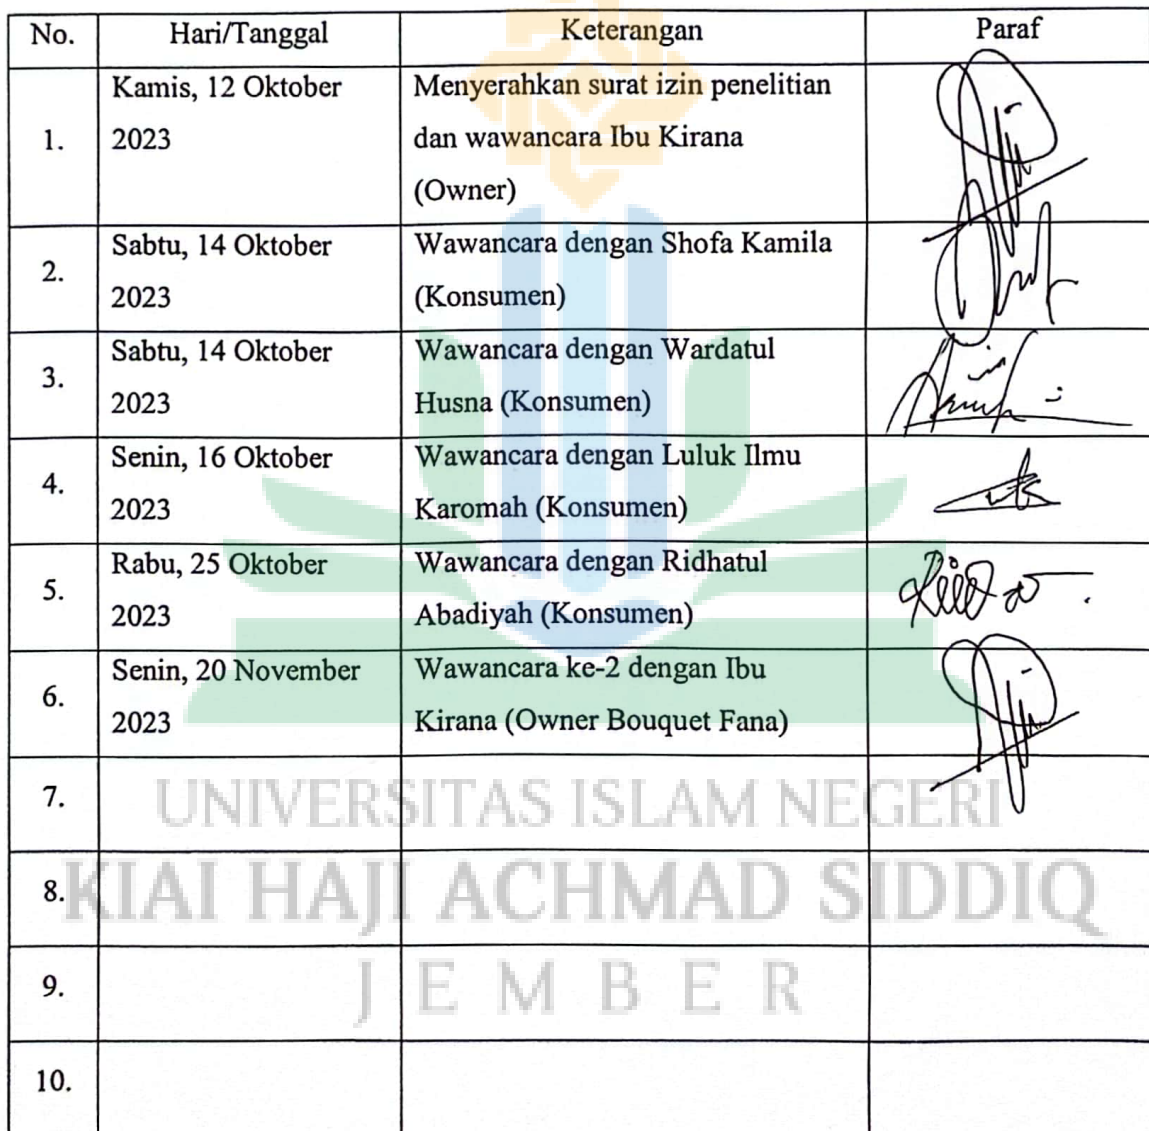 No. Hari/Tanggal Keterangan Paraf
Kamis, 12 Oktober Menyerahkan surat izin penelitian
1. 2023 dan wawancara Ibu Kirana
(Owner)
Sabtu, 14 Oktober Wawancara dengan Shofa Kamila
2. 2023 (Konsumen)
Sabtu, 14 Oktober Wawancara dengan Wardatul
3. 2023 Husna (Konsumen)
Senin, 16 Oktober Wawancara dengan Luluk Ilmu
4. 2023 Karomah (Konsumen)
Rabu, 25 Oktober Wawancara dengan Ridhatul
5. 2023 Abadiyah (Konsumen)
Senin, 20 November Wawancara ke-2 dengan Ibu
6. 2023 Kirana (Owner Bouquet Fana)
7.
UNIVERSITAS ISLAM NEGERI
8.
KIAI HAJI ACHMAD SIDDIQ
9.
JEMBER
10.